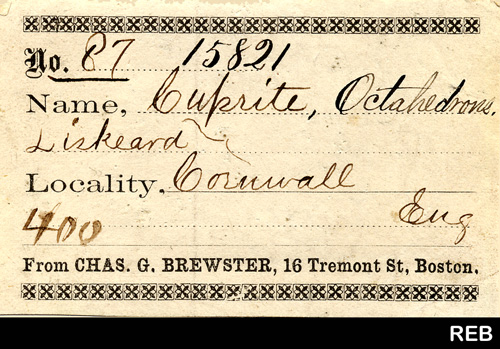 No. 87 15821
Name, Cuprite, Octahedrons.
Liskeard
Locality, Cornwall
Eng
400
From CHAS. G. BREWSTER, 16 Tremont St, Boston.
REB